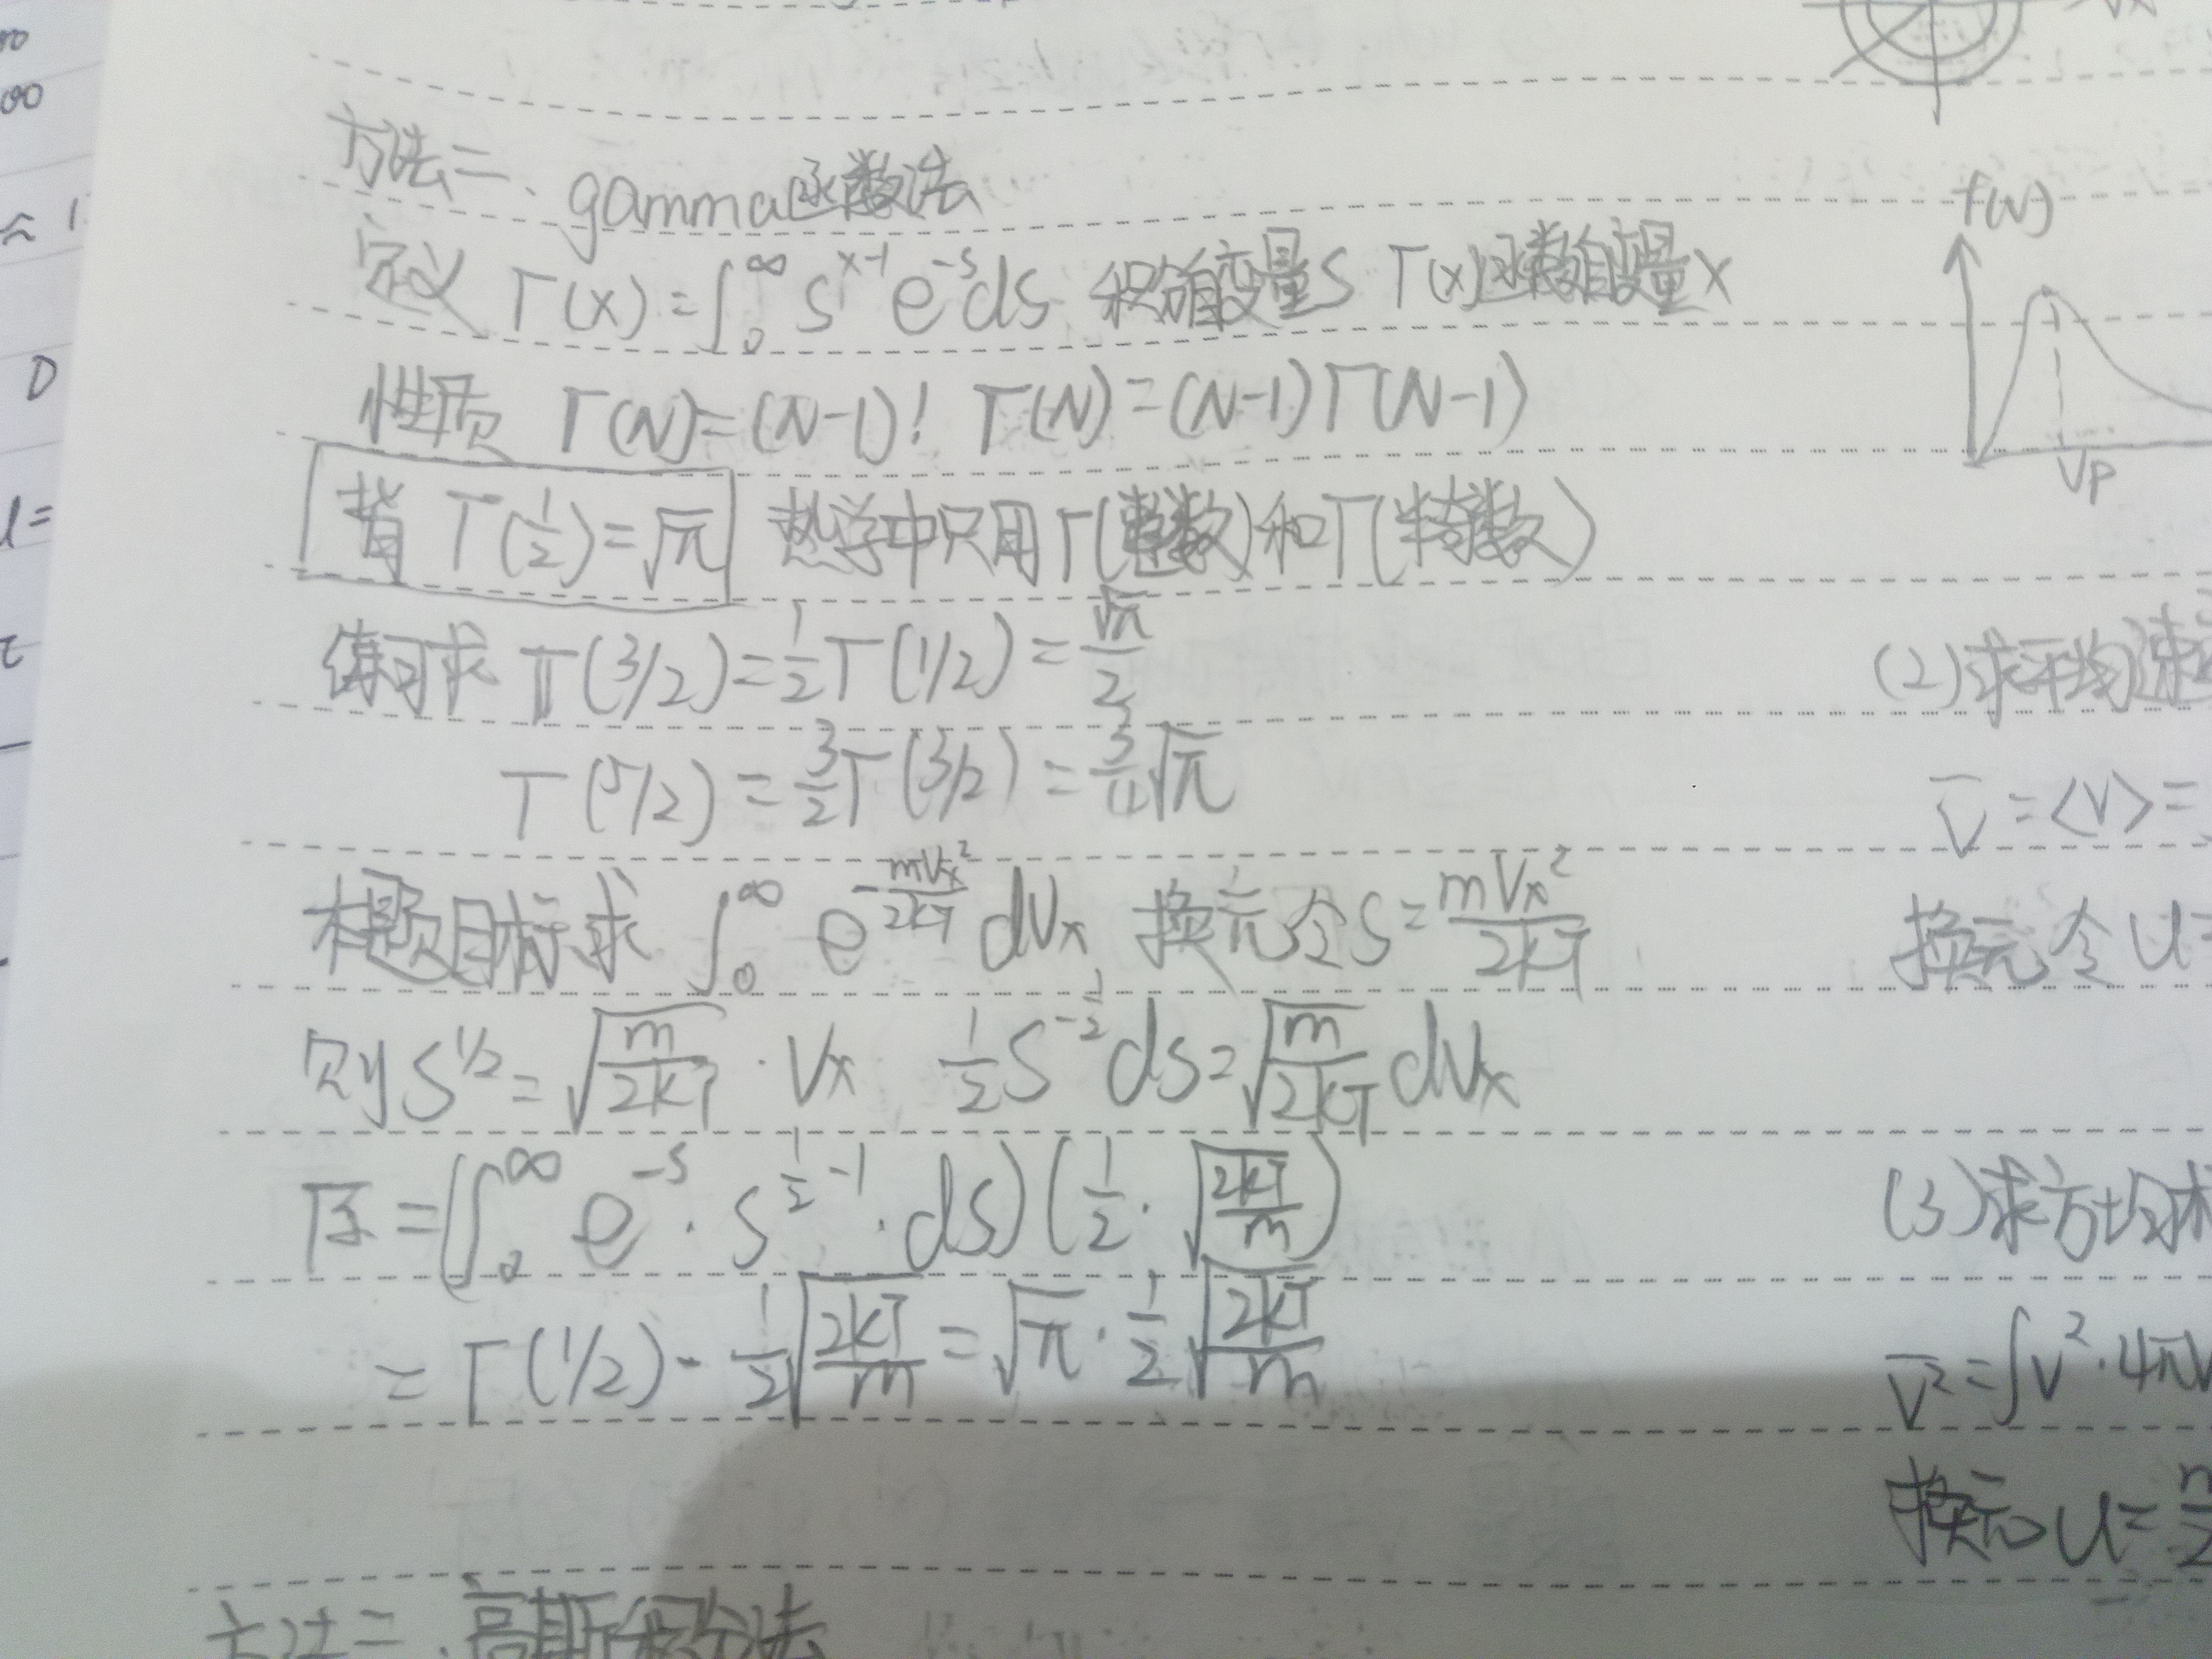 方法二、gamma函数法
定义 Γ(x) = ∫₀^∞ s^(x-1) e^(-s) ds 积分自变量s Γ(x)函数自变量x
性质 Γ(N) = (N-1)! Γ(N) = (N-1)Γ(N-1)
背 Γ(1/2) = √π 热学中只用Γ(整数)和Γ(半奇数)
练习求 Γ(3/2) = 1/2 Γ(1/2) = √π/2
Γ(5/2) = 3/2 Γ(3/2) = 3/4 √π
本题目标求 ∫₀^∞ e^(-mVx²/2kT) dVx 换元令 s = mVx²/2kT
则 s^(1/2) = √(m/2kT) · Vx 1/2 s^(-1/2) ds = √(m/2kT) dVx
原 = (∫₀^∞ e^(-s) · s^(1/2-1) · ds)(1/2 · √(2kT/m))
= Γ(1/2) · 1/2 √(2kT/m) = √π · 1/2 √(2kT/m)
高斯积分法
f(v)
Vp
(2)求平均速
V̄ = <V> =
换元令 u =
(3)求方均
V̄² = ∫V² · 4π
换元 u =